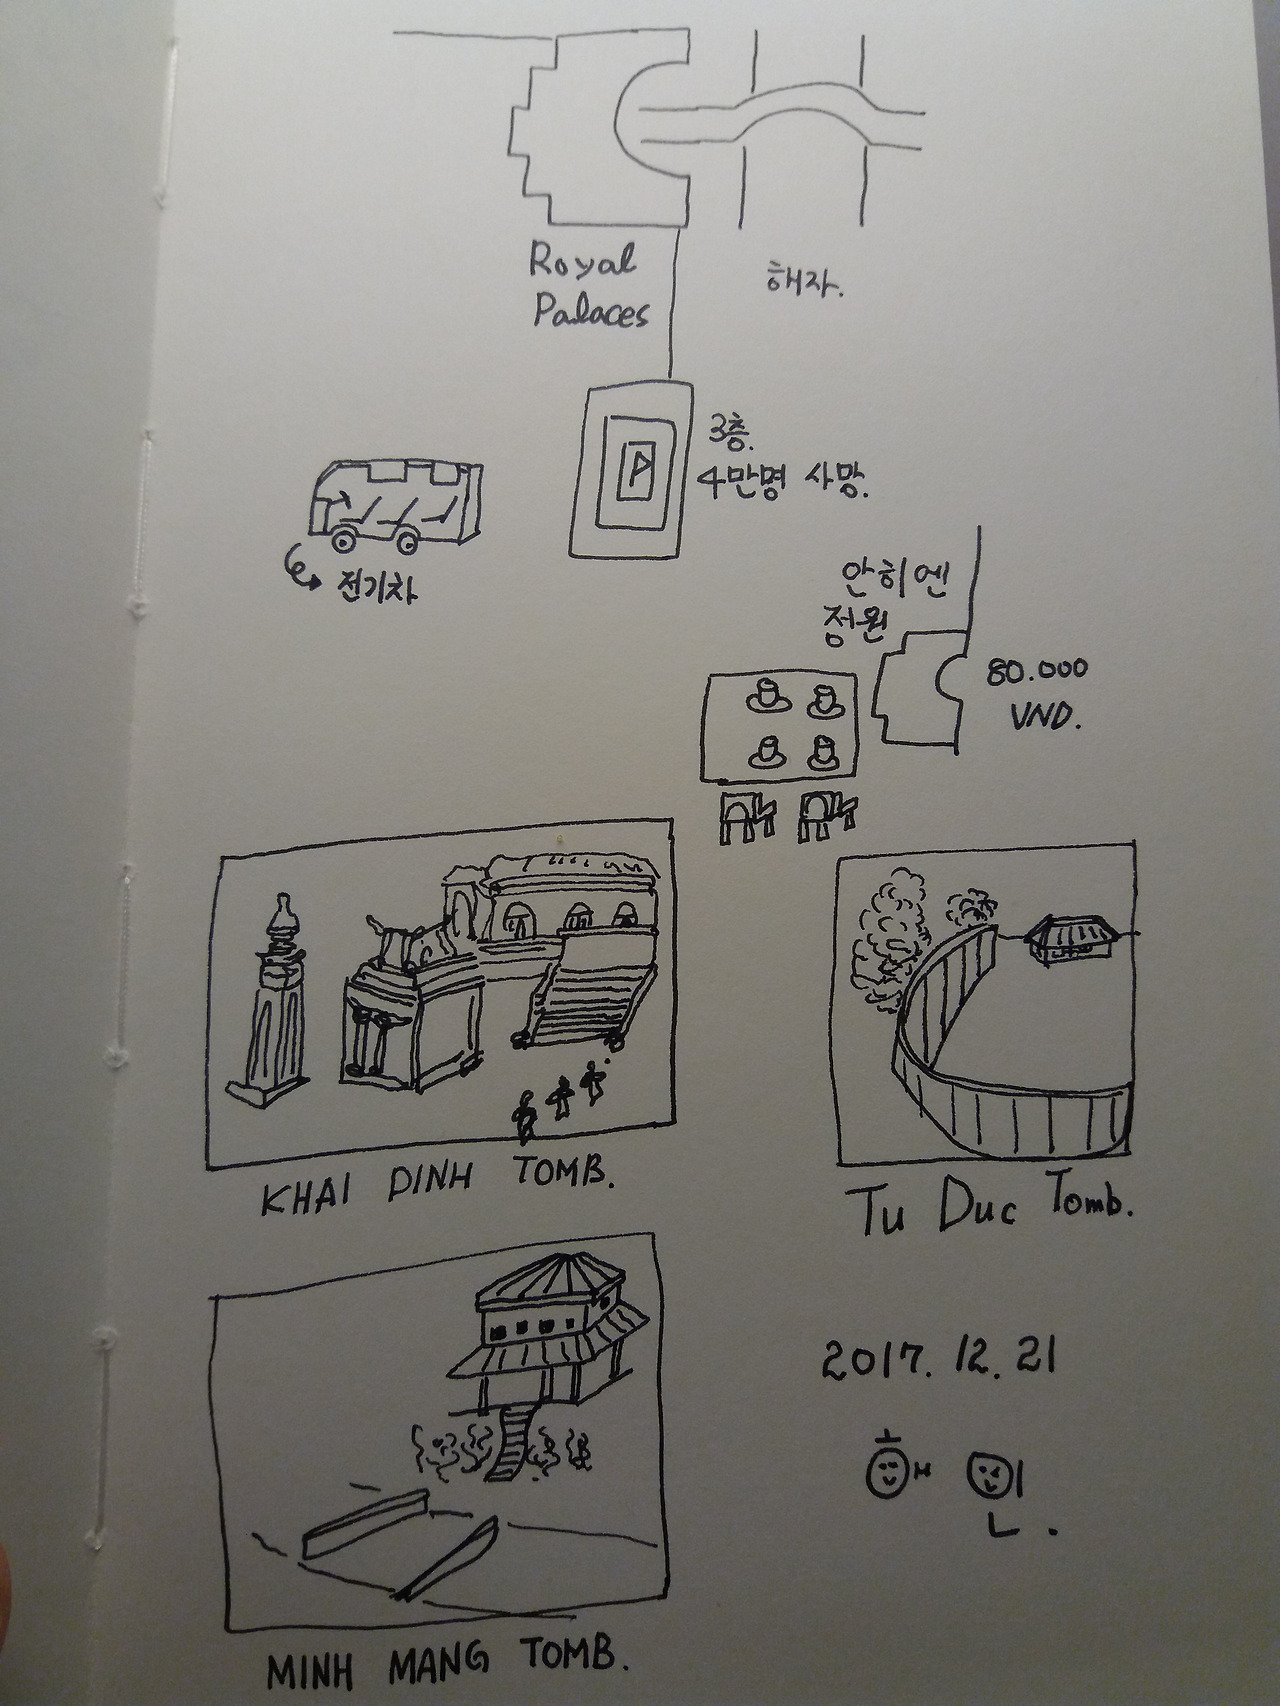 Royal
Palaces
해자.
P
3층.
4만명 사망.
전기차
안히엔
정원
80.000
VND.
KHAI DINH TOMB.
Tu Duc Tomb.
2017. 12. 21
해인.
MINH MANG TOMB.